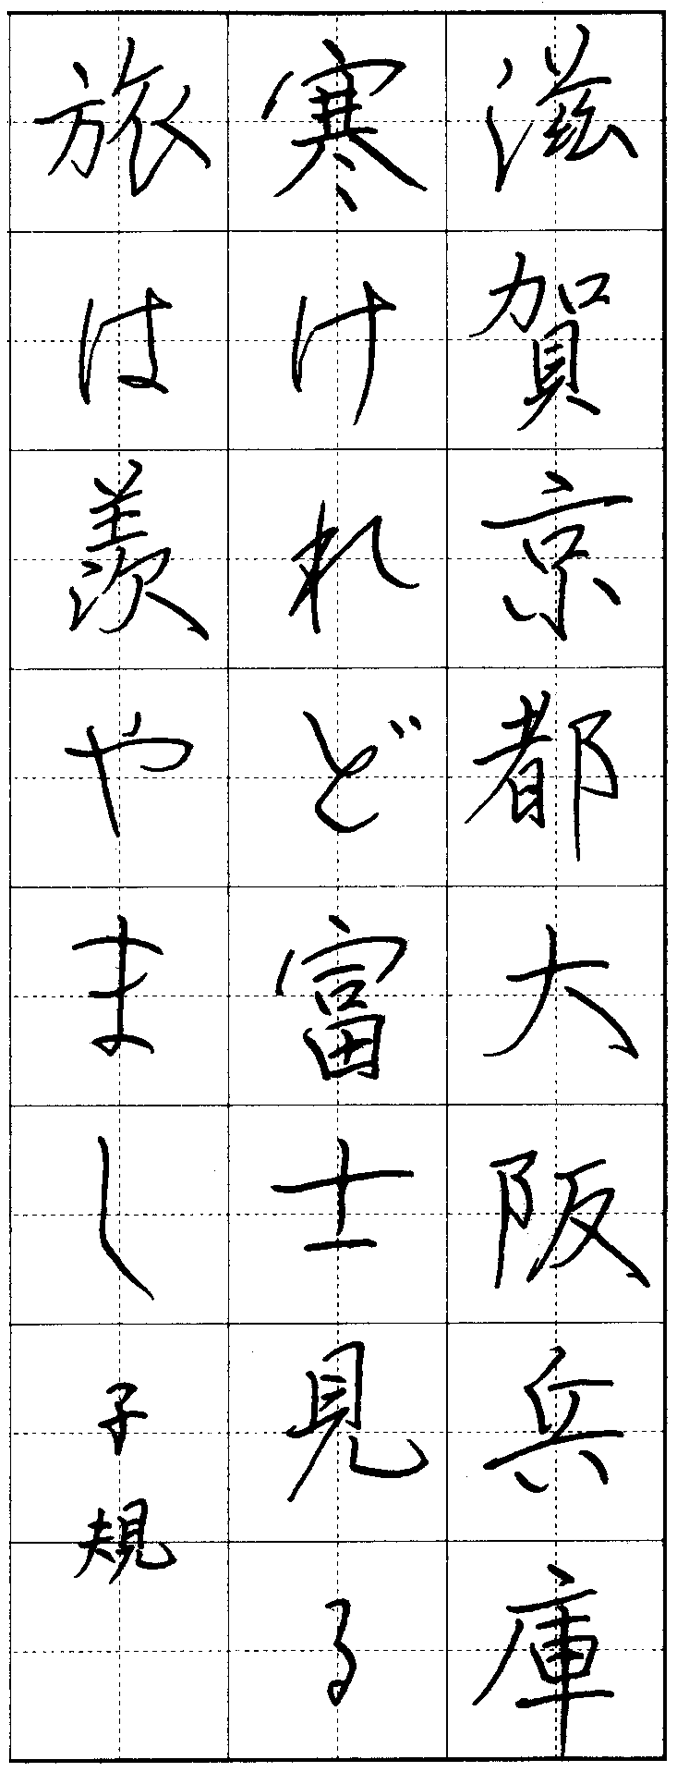 滋賀京都大阪兵庫
寒けれど富士見る
旅は羨やまし子規